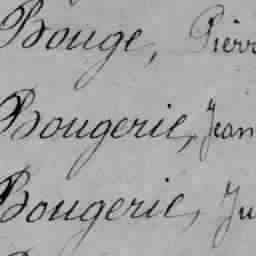 Bouge, Pierr
Bougerie, Jean
Bougerie, Ju